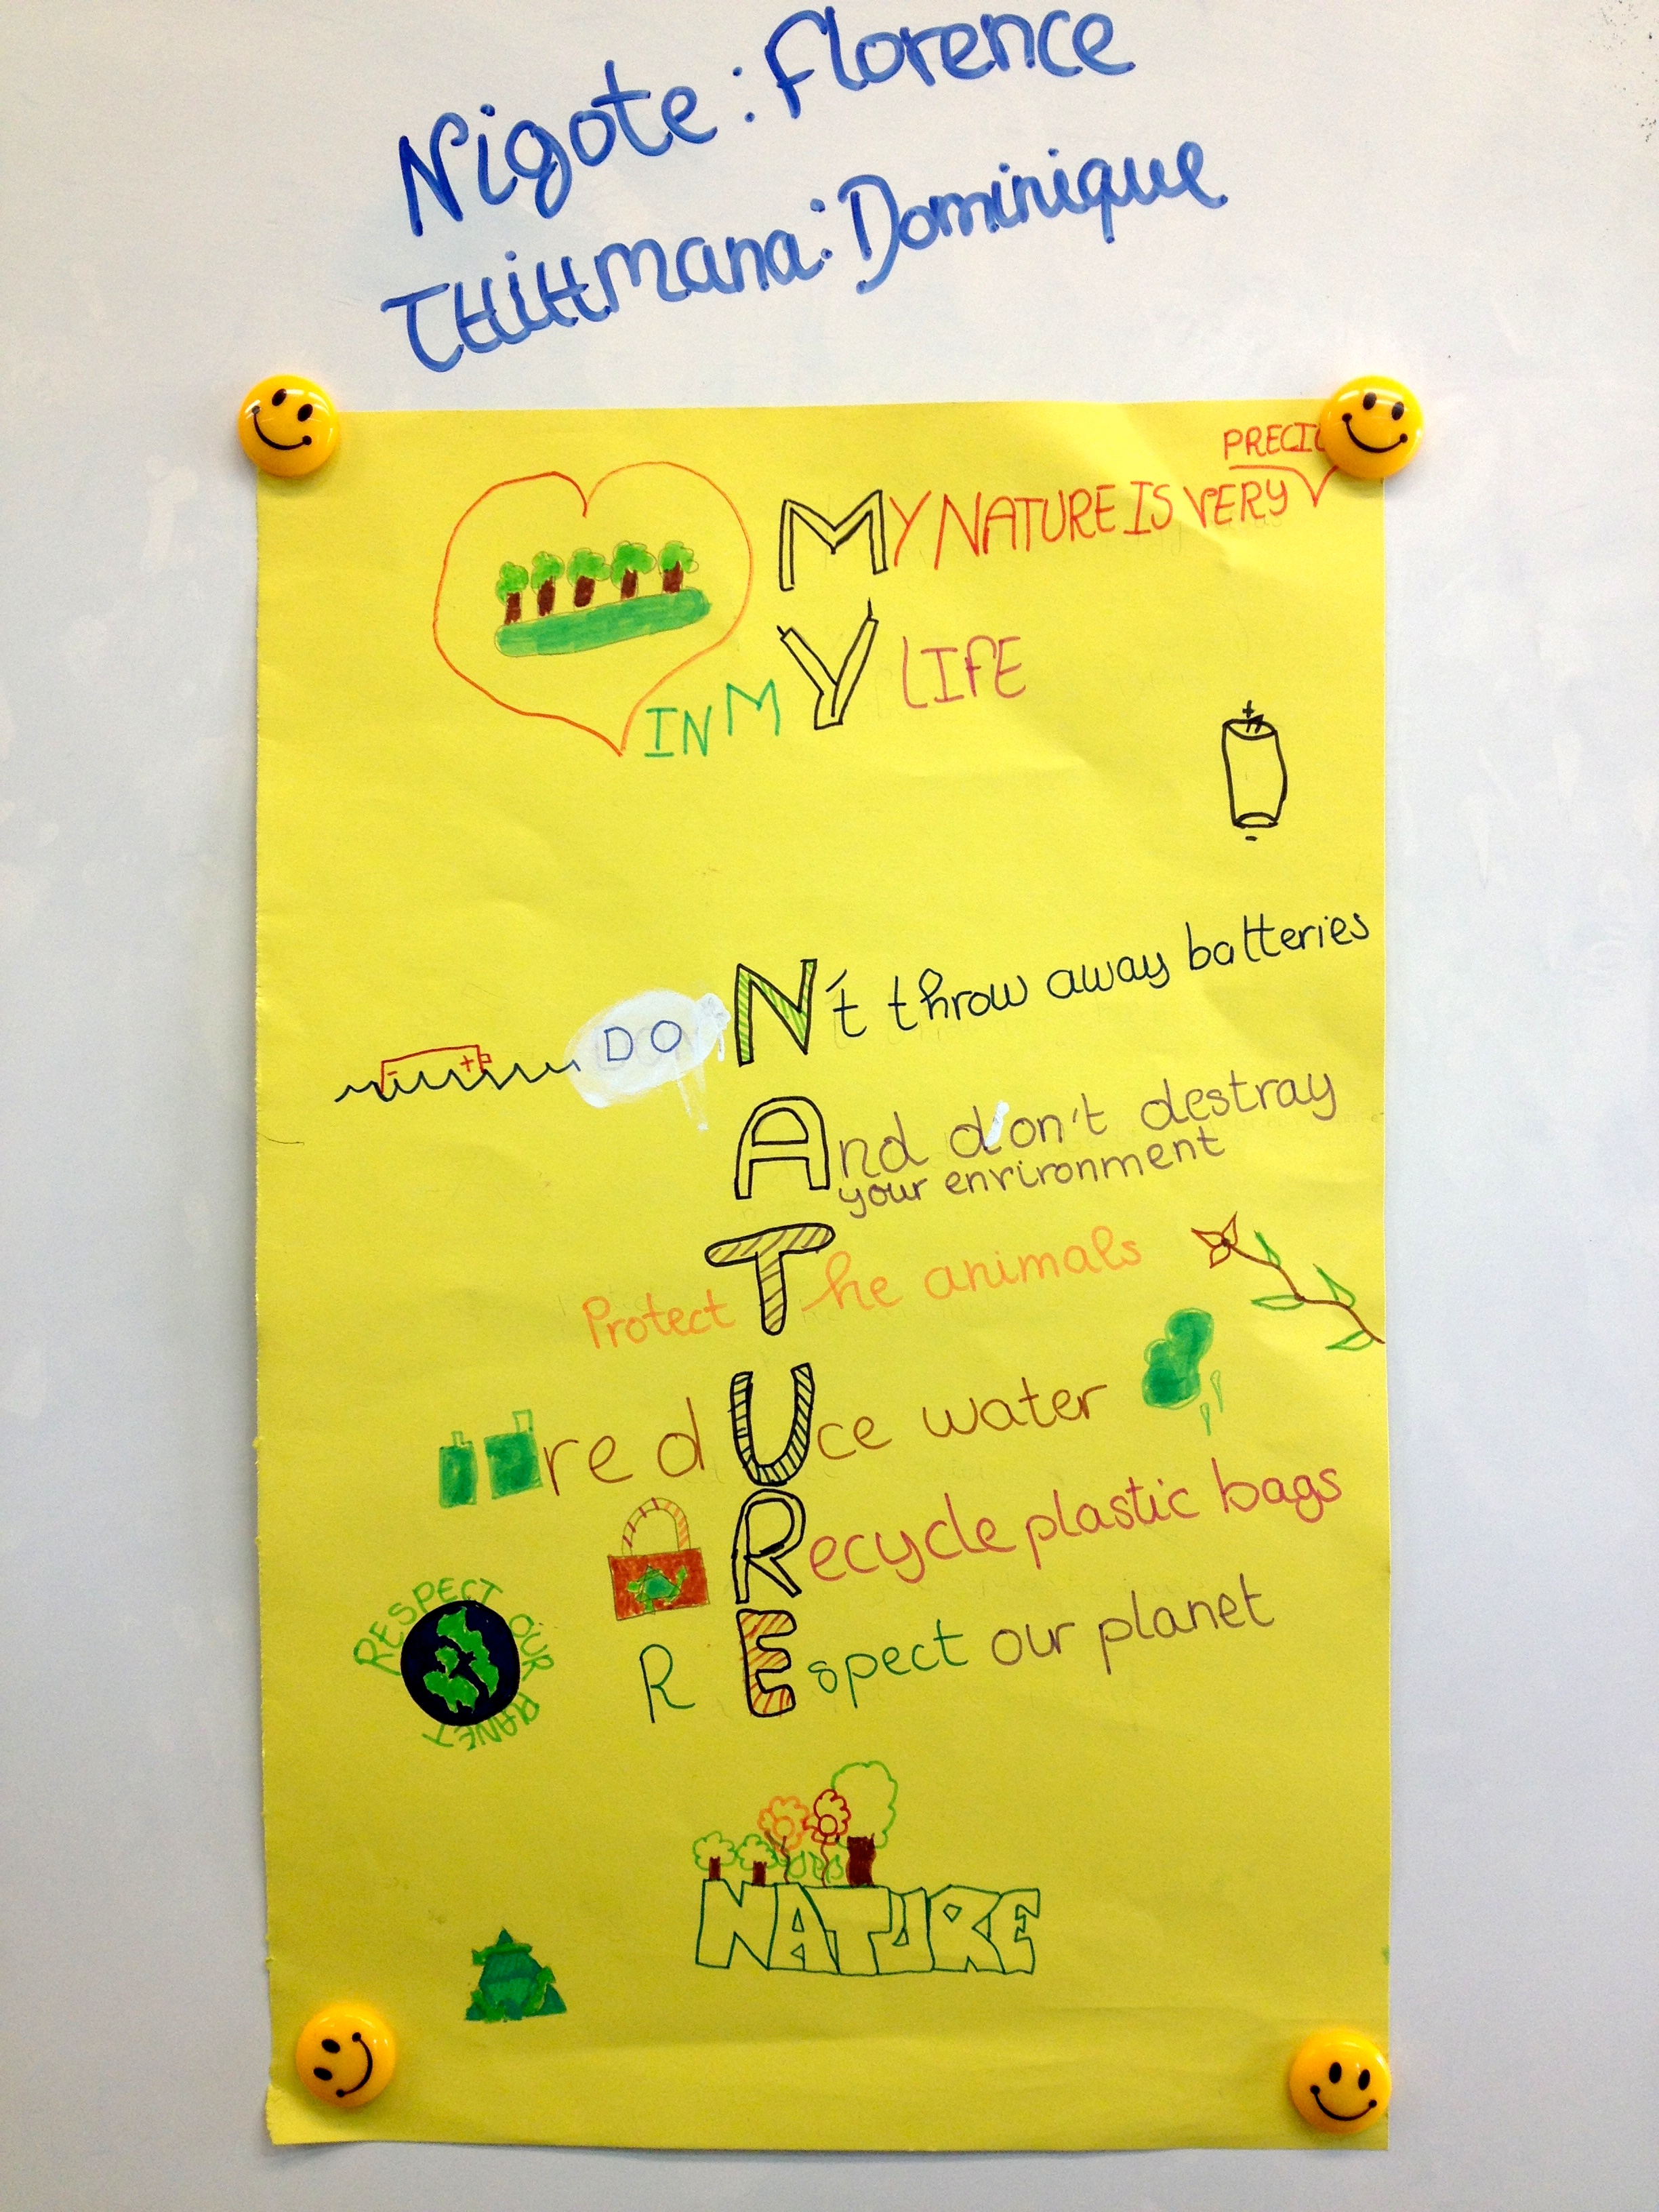 Nigote: Florence
THiHMana: Dominique
MY NATURE IS VERY
IN MY LIFE
DON't throw away batteries
And don't destray
your environment
Protect The animals
redUce water
Recycle plastic bags
REspect our planet
RESPECT OUR PLANET
NATURE